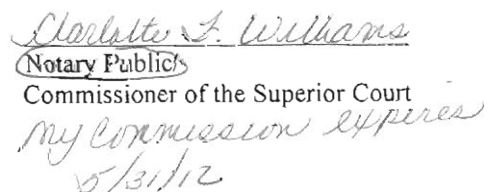 Charlotte F. Williams
Notary Public/
Commissioner of the Superior Court
My Commission expires
5/31/12